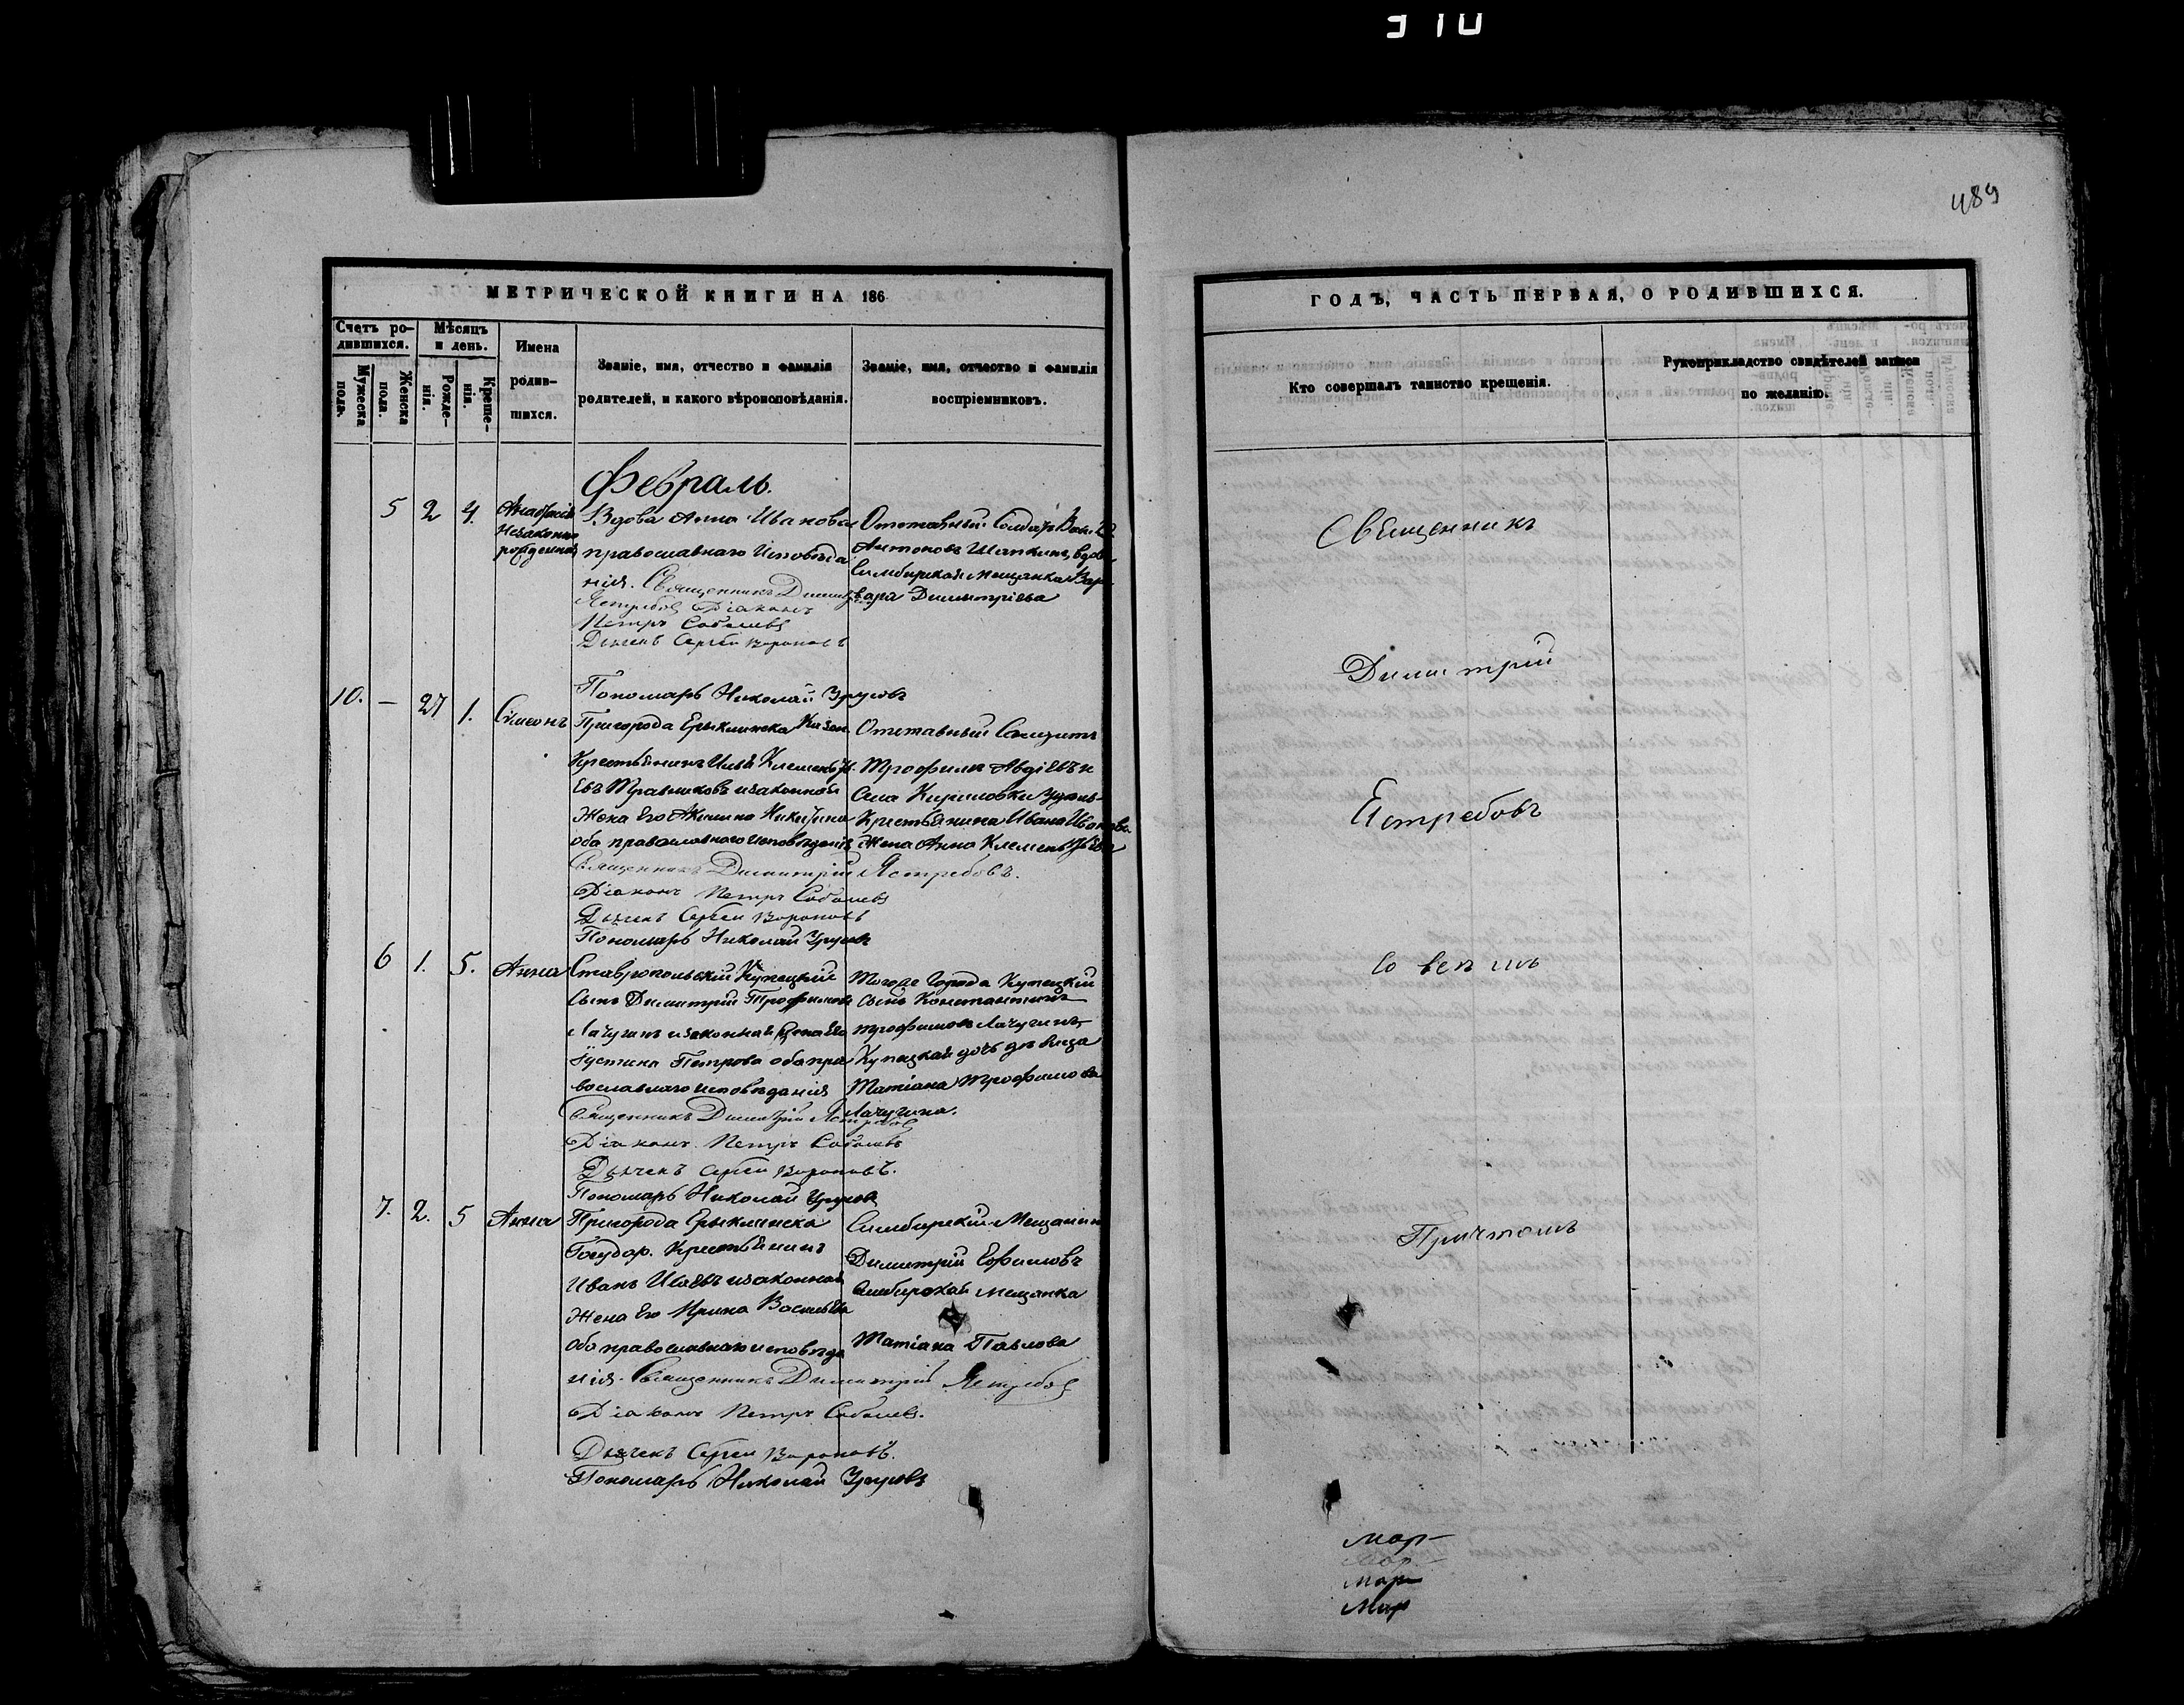 310
489
МЕТРИЧЕСКОЙ КНИГИ НА 186
Счетъ ро-
дившихся.
Мужеска
пола.
Женска
пола.
Мѣсяцъ
и день.
Рожде-
нія.
Креще-
нія.
Имена
родив-
шихся.
Званіе, имя, отчество и фамилія
родителей, и какого вѣроисповѣданія.
Званіе, имя, отчество и фамилія
воспріемниковъ.
Февраль.
5 2 4.
незаконно
рожденная
Вдова Анна Иванова
православнаго исповѣда
нія. Священникъ Димитрій
Ястребовъ Діаконъ
Петръ Соболевъ
Дьячекъ Сергей Вороновъ
Пономарь Николай
Отставный Солдатъ
Антоновъ Шапкинъ, вдова
Симбирская мещанка Вар
вара Димитріева
10. — 27 1. Симеонъ
Пригорода Ерыклинска Казен.
Крестьянинъ Клементь
евъ Травниковъ и законная
Жена Его Акилина Никитина
оба православнаго исповѣданія
Священникъ Димитрій Ястребовъ.
Діаконъ Петръ Соболевъ
Дьячекъ Сергей Вороновъ
Пономарь Николай
Отставный Солдатъ
Трофимъ Авдіевъ и
Села Кириловки
Крестьянина Ивана Иванова
Жена Анна Клементьева
6 1. 5. Анна
Ставропольскій Купецкій
Сынъ Димитрій Трофимовъ
Лачугинъ и законная Жена Его
Іустина Петрова оба пра
вославнаго исповѣданія
Священникъ Димитрій Ястребовъ
Діаконъ Петръ Соболевъ
Дьячекъ Сергей Вороновъ.
Пономарь Николай
Тогоже Города Купецкій
Сынъ Константинъ
Трофимовъ Лачугинъ,
Купецкая дочь дѣвица
Татіана Трофимова
Лачугина.
7. 2. 5 Анна
Пригорода Ерыклинска
Государ. Крестьянинъ
Иванъ и законная
Жена Его Ирина Васильева
оба православнаго исповѣда
нія. Священникъ Димитрій Ястребовъ
Діаконъ Петръ Соболевъ.
Дьячекъ Сергей Вороновъ.
Пономарь Николай
Симбирскій Мещанинъ
Димитрій Ефимовъ
Симбирская мещанка
Татіана Павлова
ГОДЪ, ЧАСТЬ ПЕРВАЯ, О РОДИВШИХСЯ.
Кто совершалъ таинство крещенія.
Рукоприкладство свидѣтелей записи
по желанію.
Священникъ
Димитрій
Ястребовъ
со всемъ
Причтомъ
Мар
Мар
Мар
Мар